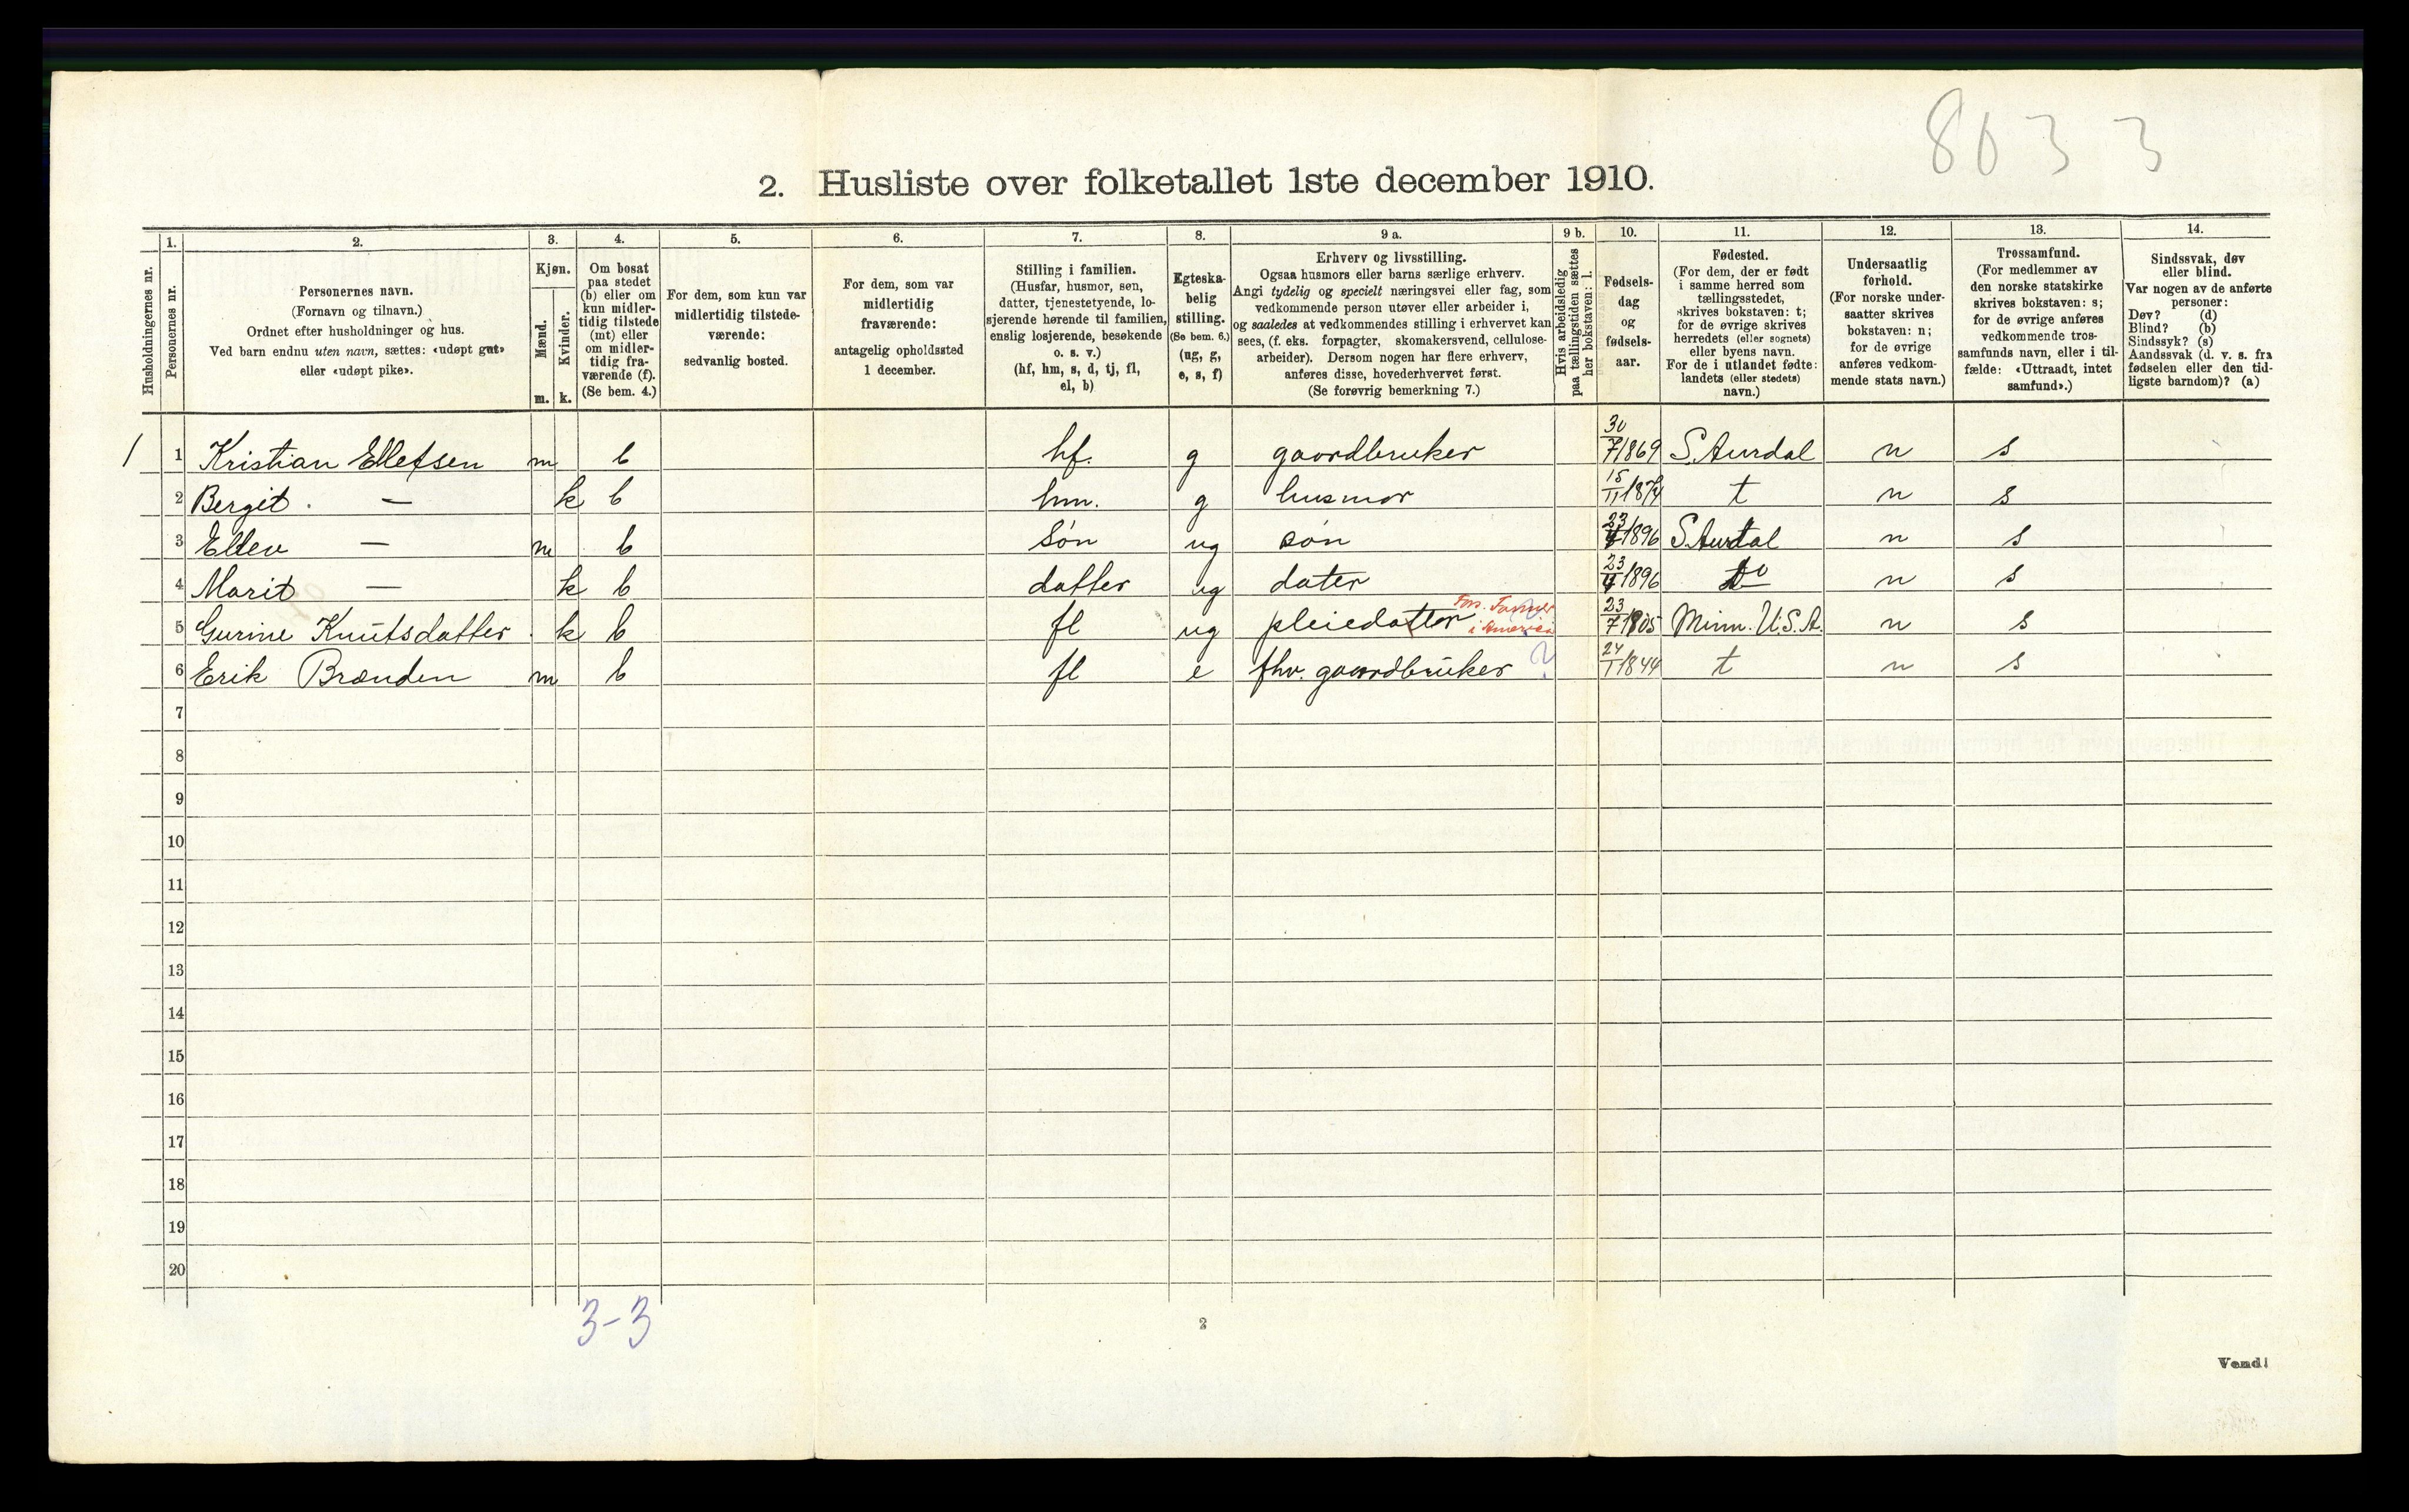 8033
2. Husliste over folketallet 1ste december 1910.
Husholdningernes nr.
1.
Personernes nr.
2.
Personernes navn.
(Fornavn og tilnavn.)
Ordnet efter husholdninger og hus.
Ved barn endnu uten navn, sættes: «udøpt gut»
eller «udøpt pike».
3.
Kjøn.
Mænd.
Kvinder.
m. k.
4.
Om bosat
paa stedet
(b) eller om
kun midler-
tidig tilstede
(mt) eller
om midler-
tidig fra-
værende (f).
(Se bem. 4.)
5.
For dem, som kun var
midlertidig tilstede-
værende:
sedvanlig bosted.
6.
For dem, som var
midlertidig
fraværende:
antagelig opholdssted
1 december.
7.
Stilling i familien.
(Husfar, husmor, søn,
datter, tjenestetyende, lo-
sjerende hørende til familien,
enslig losjerende, besøkende
o. s. v.)
(hf, hm, s, d, tj, fl,
el, b)
8.
Egteska-
belig
stilling.
(Se bem. 6.)
(ug, g,
e, s, f)
9 a.
Erhverv og livsstilling.
Ogsaa husmors eller barns særlige erhverv.
Angi tydelig og specielt næringsvei eller fag, som
vedkommende person utøver eller arbeider i,
og saaledes at vedkommendes stilling i erhvervet kan
sees, (f. eks. forpagter, skomakersvend, cellulose-
arbeider). Dersom nogen har flere erhverv,
anføres disse, hovederhvervet først.
(Se forøvrig bemerkning 7.)
9 b.
Hvis arbeidsledig
paa tællingstiden sættes
her bokstaven: l.
10.
Fødsels-
dag
og
fødsels-
aar.
11.
Fødested.
(For dem, der er født
i samme herred som
tællingsstedet,
skrives bokstaven: t;
for de øvrige skrives
herredets (eller sognets)
eller byens navn.
For de i utlandet fødte:
landets (eller stedets)
navn.)
12.
Undersaatlig
forhold.
(For norske under-
saatter skrives
bokstaven: n;
for de øvrige
anføres vedkom-
mende stats navn.)
13.
Trossamfund.
(For medlemmer av
den norske statskirke
skrives bokstaven: s;
for de øvrige anføres
vedkommende tros-
samfunds navn, eller i til-
fælde: «Uttraadt, intet
samfund».)
14.
Sindssvak, døv
eller blind.
Var nogen av de anførte
personer:
Døv? (d)
Blind? (b)
Sindssyk? (s)
Aandssvak (d. v. s. fra
fødselen eller den tid-
ligste barndom)? (a)
1 1 Kristian Ellefsen m b hf. g gaardbruker 30/7 1869 S. Aurdal n s
2 Bergit — k b hm. g husmor 15/11 1874 t n s
3 Ellev — m b søn ug søn 23/4 1896 S. Aurdal n s
4 Marit — k b datter ug dater 23/4 1896 do n s
5 Gurine Knutsdatter k b fl ug pleiedatter Fors. Farmer i America 23/7 1905 Minn. U.S.A. n s
6 Erik Brænden m b fl e fhv. gaardbruker 24/1 1844 t n s
7
8
9
10
11
12
13
14
15
16
17
18
19
20
3-3
2
Vend!